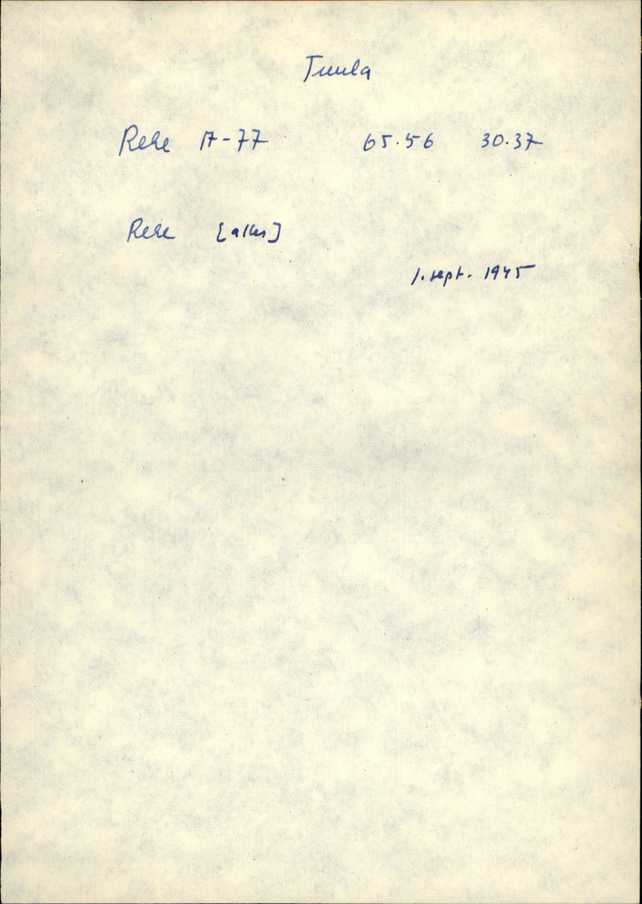 Tuula
Rehe 17-77 65.56 30.37
Rehe [alks]
1. sept. 1945